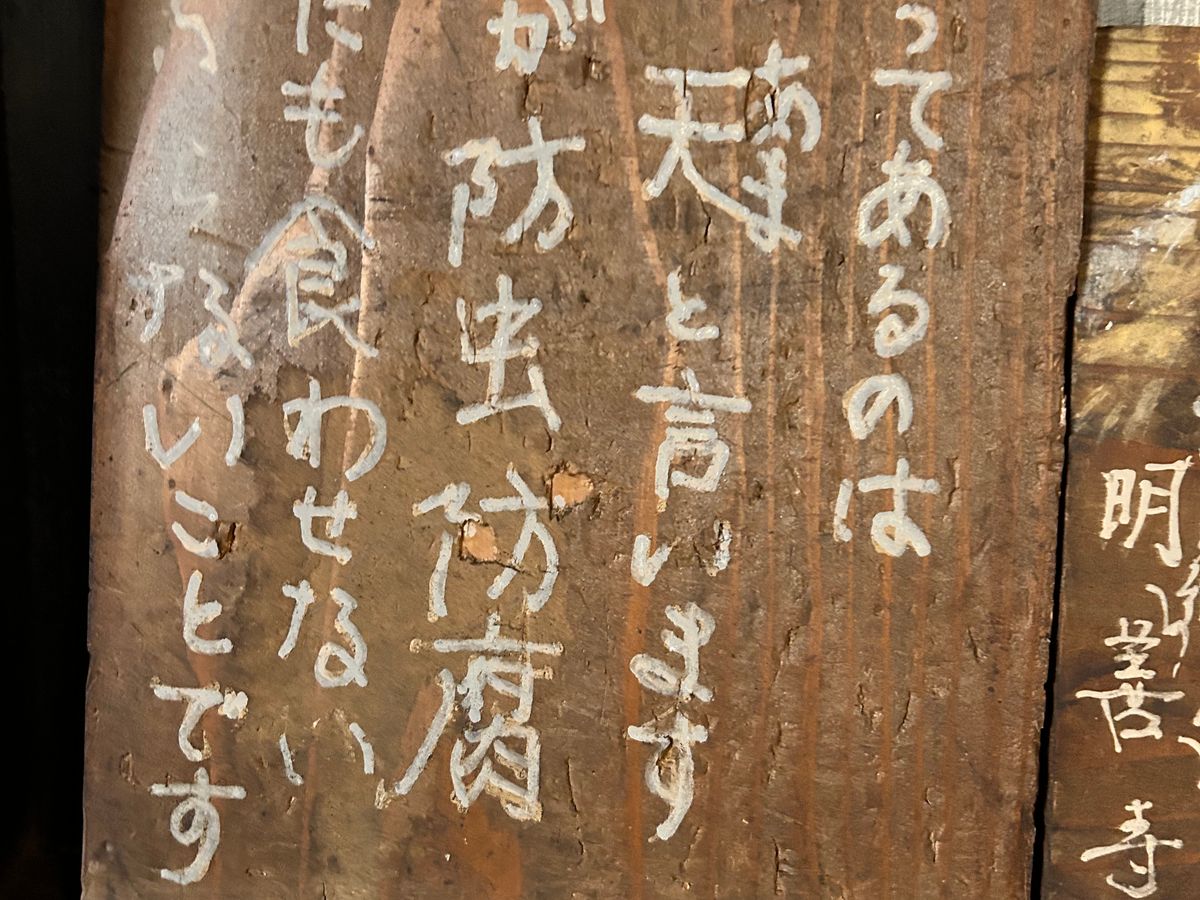 明善寺
ってあるのは
あま
天と言います
が防虫防腐
にも食わせない
ないことです